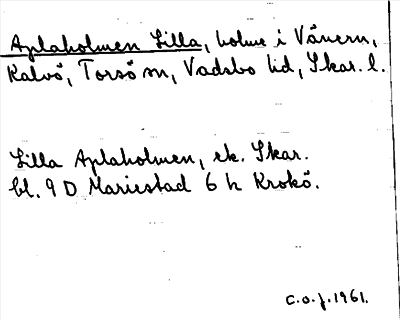 Aplaholmen Lilla, holme i Vänern,
Kalvö, Torsö sn, Vadsbo hd, Skar. l.
Lilla Aplaholmen, ek. Skar.
bl. 9 D Mariestad 6 h Krokö.
C.O.J. 1961.